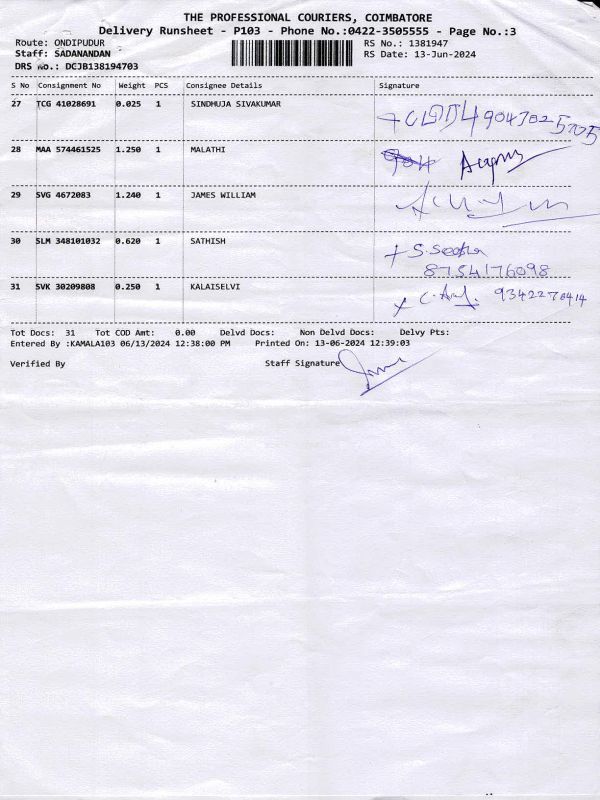 THE PROFESSIONAL COURIERS, COIMBATORE
Delivery Runsheet - P103 - Phone No.:0422-3505555 - Page No.:3
Route: ONDIPUDUR RS No.: 1381947
Staff: SADANANDAN RS Date: 13-Jun-2024
DRS No.: DCJB138194703
S No Consignment No Weight PCS Consignee Details Signature
27 TCG 41028691 0.025 1 SINDHUJA SIVAKUMAR
28 MAA 574461525 1.250 1 MALATHI
29 SVG 4672083 1.240 1 JAMES WILLIAM
30 SLM 348101032 0.620 1 SATHISH
8754176098
31 SVK 30209808 0.250 1 KALAISELVI 9342270414
Tot Docs: 31 Tot COD Amt: 0.00 Delvd Docs: Non Delvd Docs: Delvy Pts:
Entered By :KAMALA103 06/13/2024 12:38:00 PM Printed On: 13-06-2024 12:39:03
Verified By Staff Signature